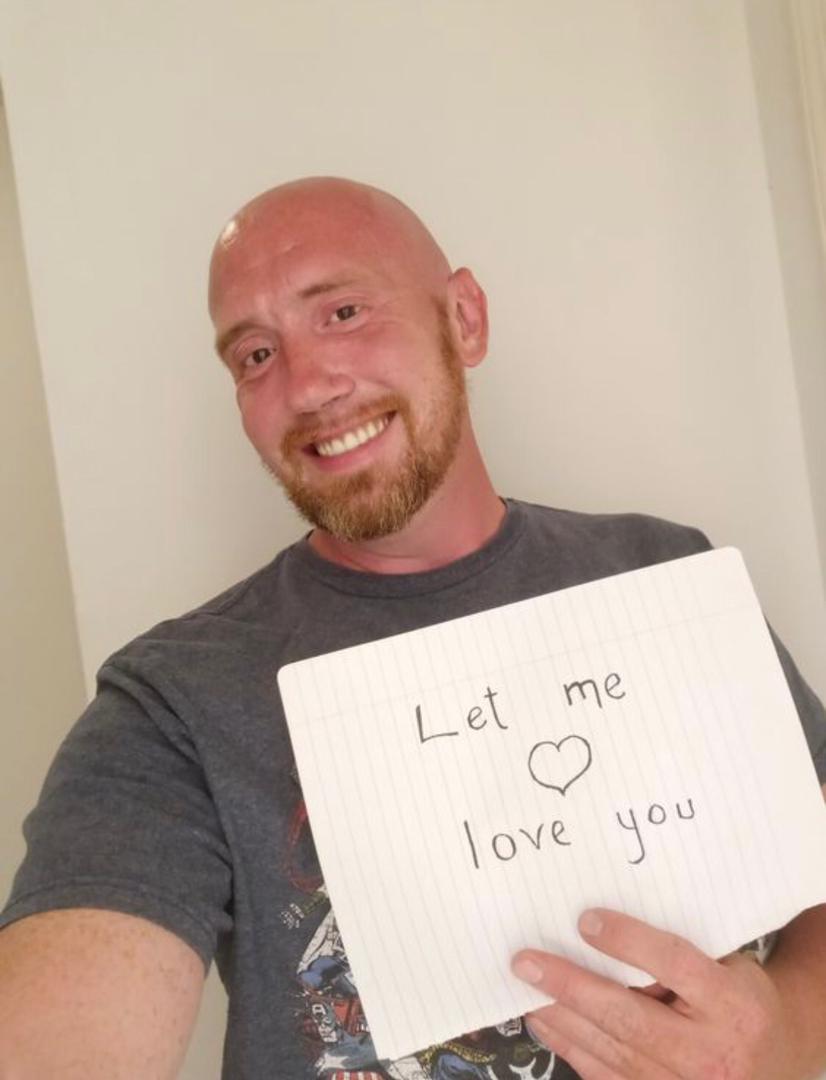 Let me
♡
love you